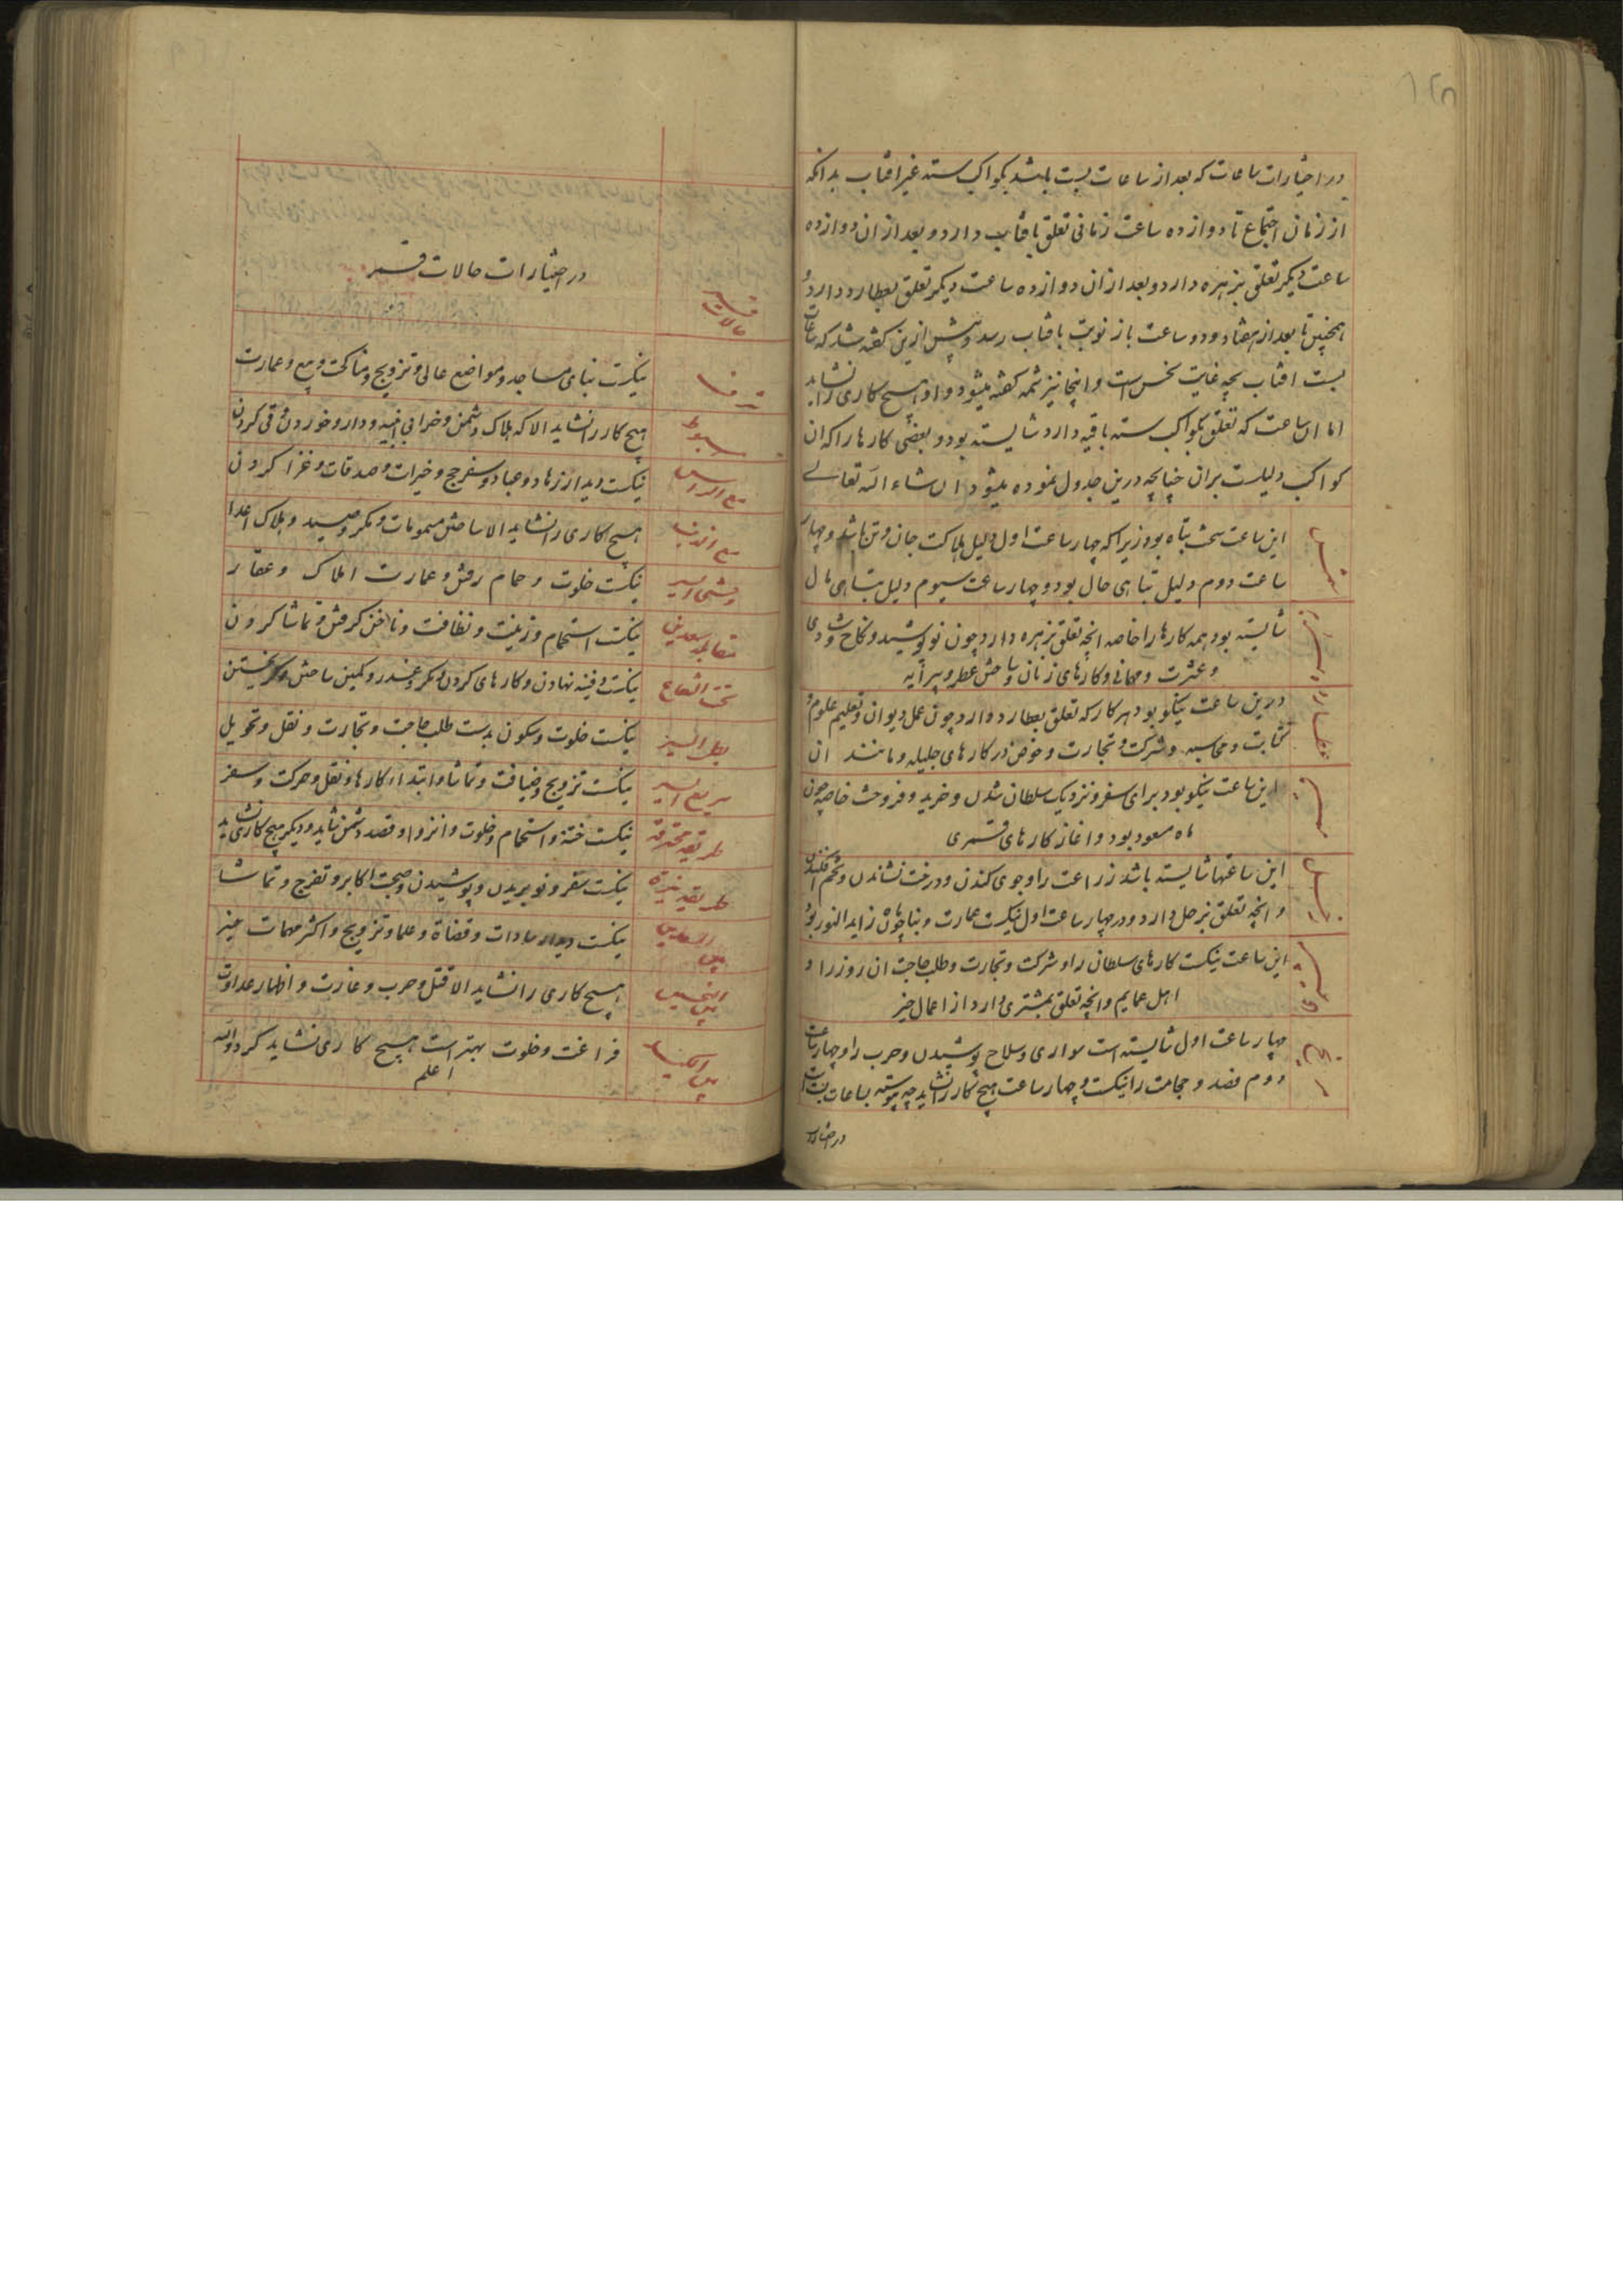 در اختیارات ساعات که بعد از ساعات بست باشد بکواکب سته غیر افتاب بدانکه
از زمان اجتماع تا دوازده ساعت زمانی تعلق بافتاب دارد و بعد از ان دوازده
ساعت دیکر تعلق بزهره دارد و بعد از ان دوازده ساعت دیکر تعلق بعطارد دارد و
همچنین تا بعد از هفتاد و دو ساعت باز نوبت بافتاب رسد و پیش ازین کفته شد که ساعات
بست افتاب بچه غایت نحس است و اینجا نیز تتمه کفته میشود و او هیچ کاری را نشاید
اما ان ساعت که تعلق بکواکب سته باقیه دارد شایسته بود و بعضی کارها را که ان
کواکب دلیلست بران چنانچه درین جدول نموده میشود ان شاء الله تعالی
شمس
این ساعت سخت تباه بود زیرا که چهار ساعت اول دلیل هلاکت جان و تن باشد و چهار
ساعت دوم دلیل تباهی حال بود و چهار ساعت سیوم دلیل تباهی مال
زهره
شایسته بود همه کارها را خاصه انچه تعلق بزهره دارد چون نو پوشیدن و نکاح و شادی
و عشرت و مهمانی و کارهای زنان و ساختن عطر و پیرایه
عطارد
درین ساعت نیکو بود هر کار که تعلق بعطارد دارد چون عمل دیوان و تعلیم علوم و
کتابت و محاسبه و شرکت و تجارت و خوض در کارهای جلیله و مانند ان
قمر
این ساعت نیکو بود برای سفر و نزدیک سلطان شدن و خرید و فروخت خاصه چون
ماه مسعود بود و اغاز کارهای قمری
زحل
این ساعتها شایسته باشد زراعت را و جوی کندن و درخت نشاندن و تخم افکندن
و انچه تعلق بزحل دارد و در چهار ساعت اول نیکست عمارت و بنا چون ماه زاید النور بود
مشتری
این ساعت نیکست کارهای سلطان را و شرکت و تجارت و طلب حاجت ان روز را و
اهل عمایم و انچه تعلق بمشتری دارد از اعمال خیر
مریخ
چهار ساعت اول شایسته است سواری و سلاح پوشیدن و حرب را و چهار ساعت
دوم فصد و حجامت را نیکست و چهار ساعت هیچ کار را نشاید چه پیوسته بساعات بست است
در اختیارات
در اختیارات حالات قمر
حالات قمر
شرف
نیکست بنای مساجد و مواضع عالی و تزویج و مناکحت و بیع و عمارت
هبوط
هیچ کار را نشاید الا که هلاک دشمن و خرابی ابنیه و دارو خوردن و قی کردن
مع الراس
نیکست دیدار زهاد و عباد و سفر حج و خیرات و صدقات و غزا کردن
مع الذنب
هیچ کاری را نشاید الا ساختن مسمومات و مکر و صید و هلاک اعدا
وحشی السیر
نیکست خلوت و حمام رفتن و عمارت املاک و عقار
مقابله سعدین
نیکست استحمام و زینت و نظافت و ناخن کرفتن و تماشا کردن
تحت الشعاع
نیکست دفینه نهادن و کارهای کردن و مکر و غدر و کمین ساختن و کریختن
بطی السیر
نیکست خلوت و سکون بدست طلب حاجت و تجارت و نقل و تحویل
سریع السیر
نیکست تزویج و ضیافت و تماشا و ابتداء کارها و نقل و حرکت و سفر
طریقه محترقه
نیکست ختنه و استحمام و خلوت و انزوا و قصد دشمن شاید و دیکر هیچ کاری نشاید
طریقه نیره
نیکست سفر و نو بریدن و پوشیدن و صحبت اکابر و تفرج و تماشا
بین السعدین
نیکست دیدار سادات و قضاة و علما و تزویج و اکثر مهمات خیر
بین النحسین
هیچ کاری را نشاید الا قتل و حرب و غارت و اظهار عداوت
بین
فراغت و خلوت بهتر است هیچ کاری نشاید کرد والله
اعلم